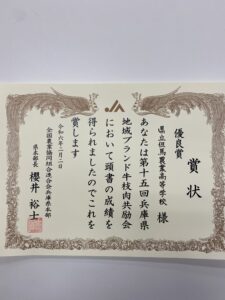 賞状
優良賞
県立但馬農業高等学校 様
あなたは第十五回兵庫県
地域ブランド牛枝肉共励会
において頭書の成績を
得られましたのでこれを
賞します
令和六年二月二日
全国農業協同組合連合会兵庫県本部
県本部長 櫻井裕士